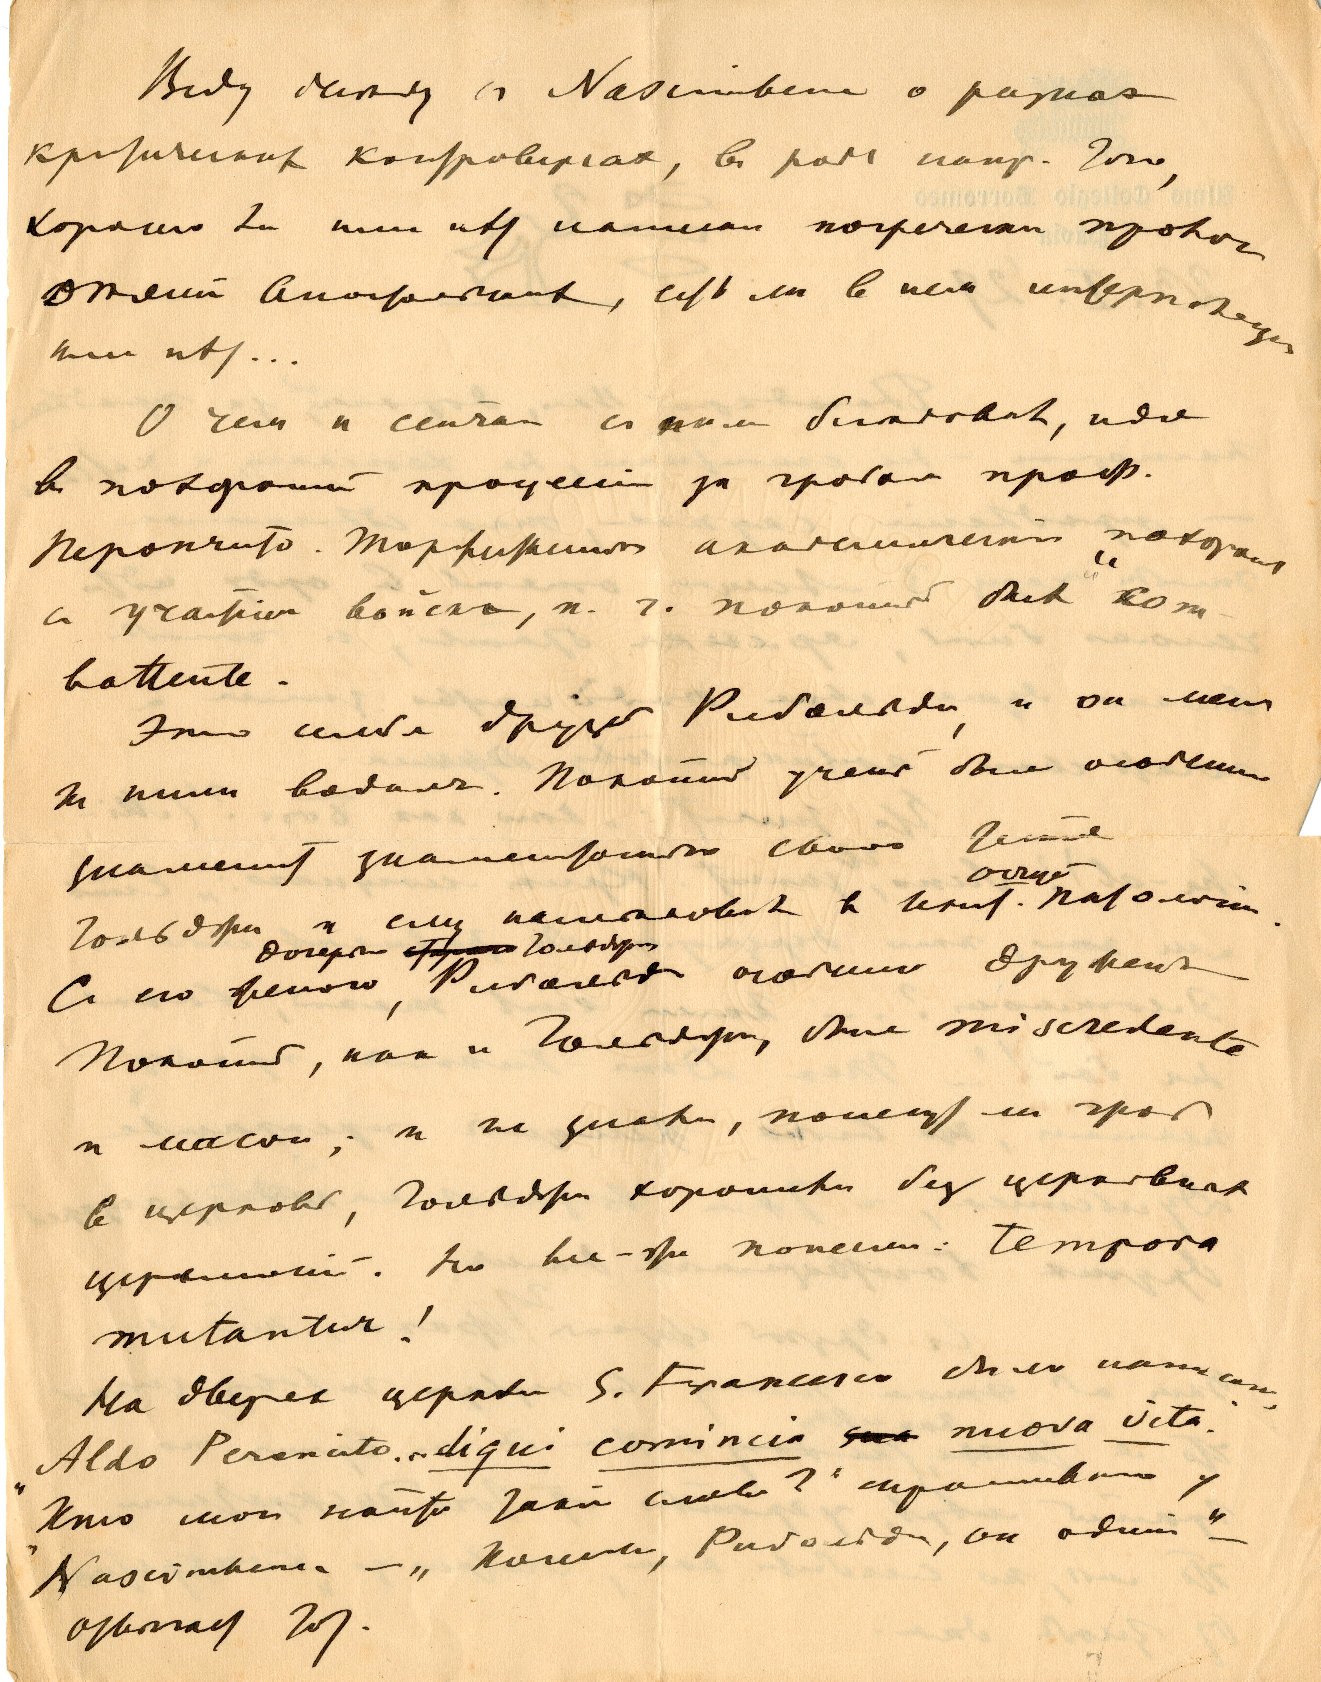 Веду беседу с Nascimbene о разных
критических контроверсах, в роде напр. того,
хорошо ли или нет написан погречески пролог
Апокалипсиса, есть ли в нем интерполяция
или нет...
О чем и сейчас с ним беседовал, идя
в похоронной процессии за гробом проф.
Перончито. Торжественные академические похороны
с участием войска, п. ч. покойный был "com-
battente".
Это семья друзей Рибольди, и он меня
к ним водил. Покойный ученый был особенно
знаменит знаменитостью своего тестя
Гольджи и ему наследовал в кафед. общей патологии.
С его женою, дочерью Гольджи, Рибольди особенно дружен.
Покойный, как и Гольджи, был miscredente
и масон; и не знали, понесут ли гроб
в церковь, Гольджи хоронили без церковных
церемоний. Но все-же понесли: tempora
mutantur!
На дверях церкви S. Francesco было написано,
Aldo Peroncito. „di qui comincia nuova vita.
"Кто мог найти такие слова?" спрашиваю у
Nascimbene – „Конечно, Рибольди, он один" –
отвечает тот.